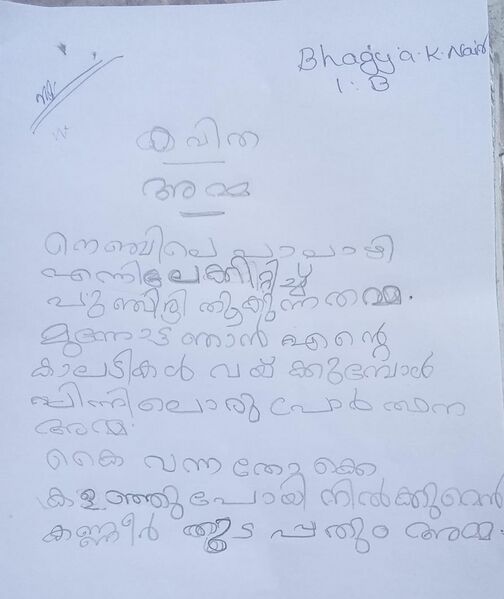 Bhagya.K.Nair
1.B
കവിത
അമ്മ
നെഞ്ചിലെ പാലാഴി
എന്നിലേക്കിറ്റിച്ച്
പുഞ്ചിരി തൂകുന്നതമ്മ.
മുന്നോട്ട് ഞാൻ എന്റെ
കാലടികൾ വയ്ക്കുമ്പോൾ
പിന്നിലൊരു പോൽ
അമ്മ.
കൈ വന്നതോക്കെ
കളഞ്ഞുപോയി നിൽക്കുമെൻ
കണ്ണീർ തുടപ്പതും അമ്മ.